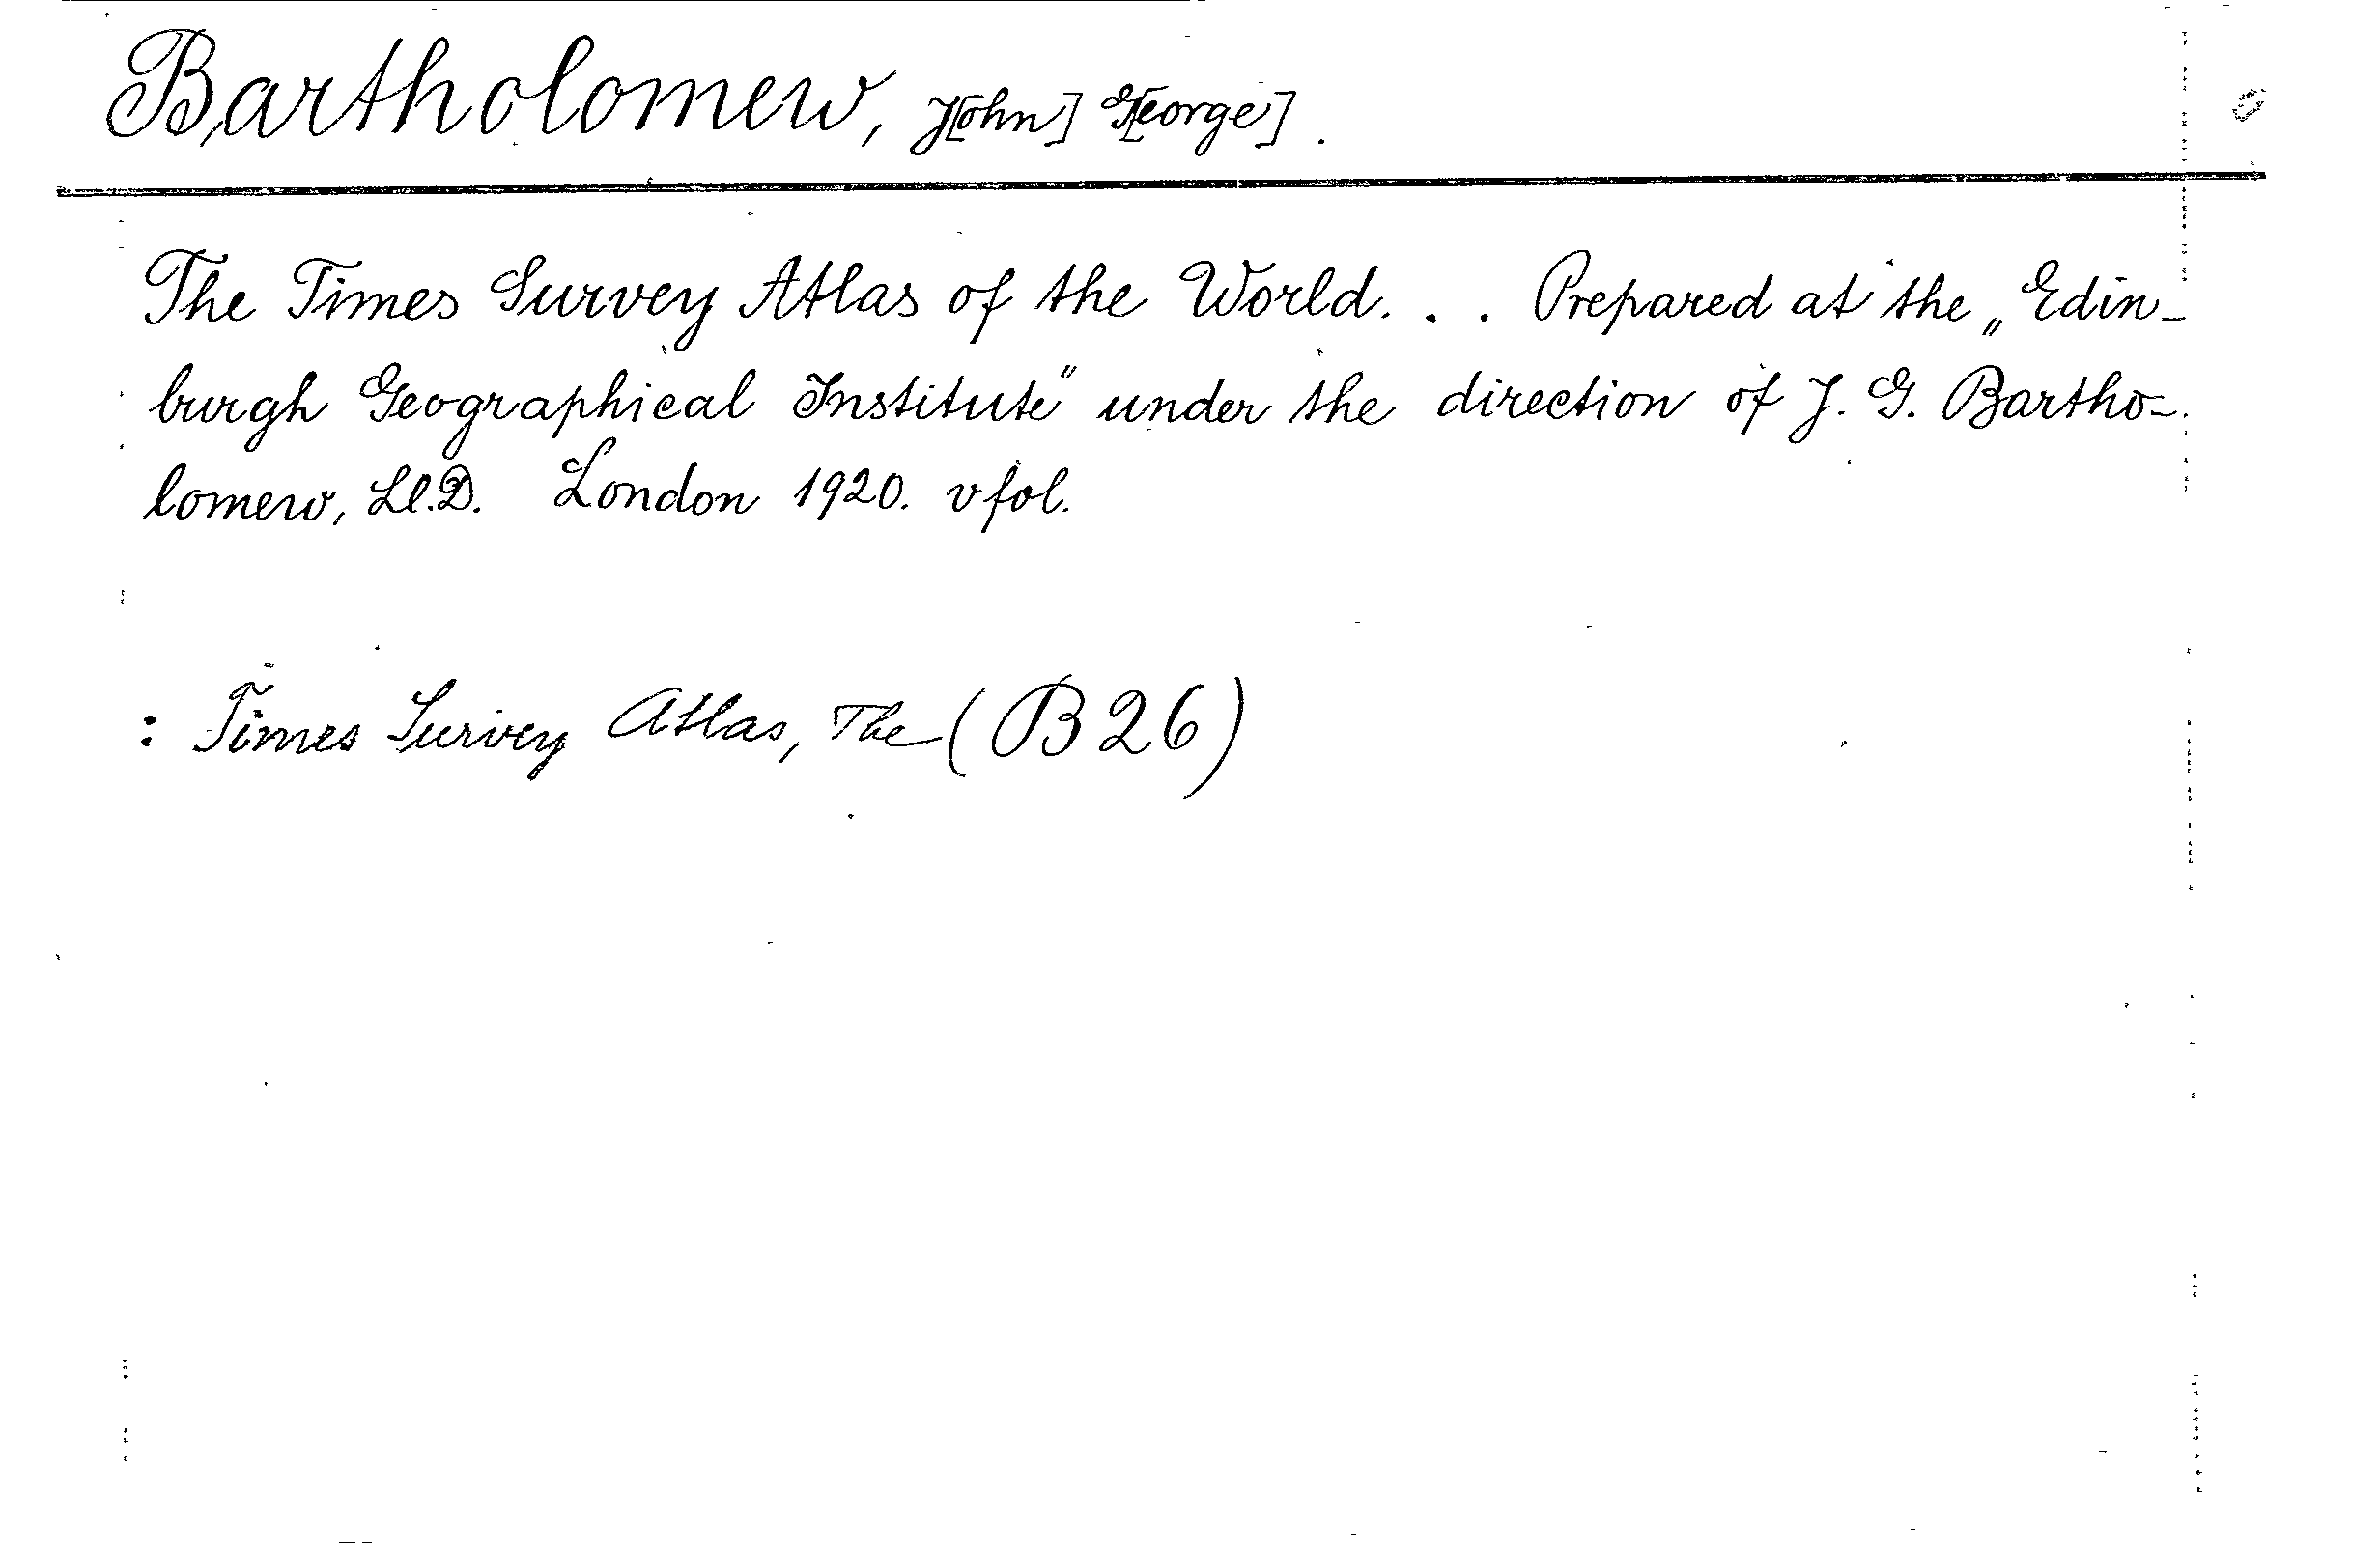 Bartholomew, J[ohn] G[eorge].
The Times Survey Atlas of the World. . . Prepared at the „Edin-
burgh Geographical Institute" under the direction of J. G. Bartho-
lomew, Ll.D. London 1920. vfol.
: Times Survey Atlas, The (B 26)